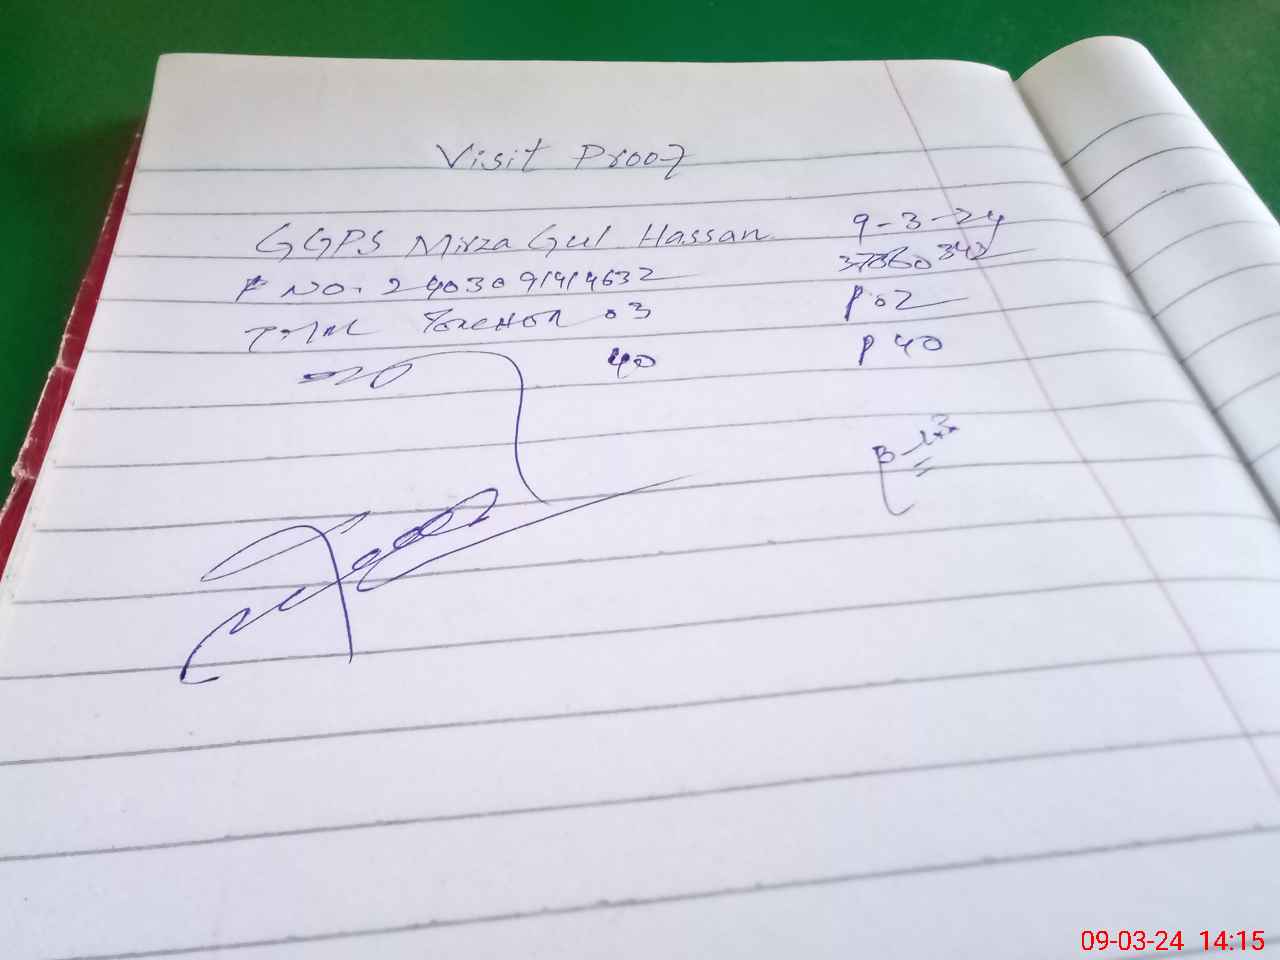 Visit Proof
GGPS Mirza Gul Hassan 9-3-24
F NO. 2403091414632 37360343
Total Teacher 03 P 02
40 P 40
09-03-24 14:15